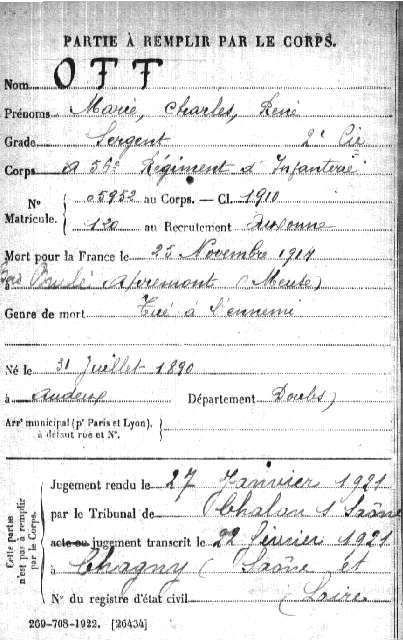 PARTIE À REMPLIR PAR LE CORPS.
Nom OTT
Prénoms Marie, Charles, René
Grade Sergent 2e Cie
Corps 56e Régiment d'Infanterie
N° Matricule. { 05952 au Corps. — Cl. 1910
120 au Recrutement Auxonne
Mort pour la France le 25 Novembre 1914
Bois Brulé Apremont (Meuse)
Genre de mort Tué à l'ennemi
Né le 31 Juillet 1890
à Audeux Département Doubs
Arrt municipal (pr Paris et Lyon), à défaut rue et N°. }
Cette partie n'est pas à remplir par le Corps.
Jugement rendu le 27 Janvier 1921
par le Tribunal de Chalon s/ Saône
acte ou jugement transcrit le 22 février 1921
à Chagny (Saône et
N° du registre d'état civil Loire
269-708-1922. [26434]